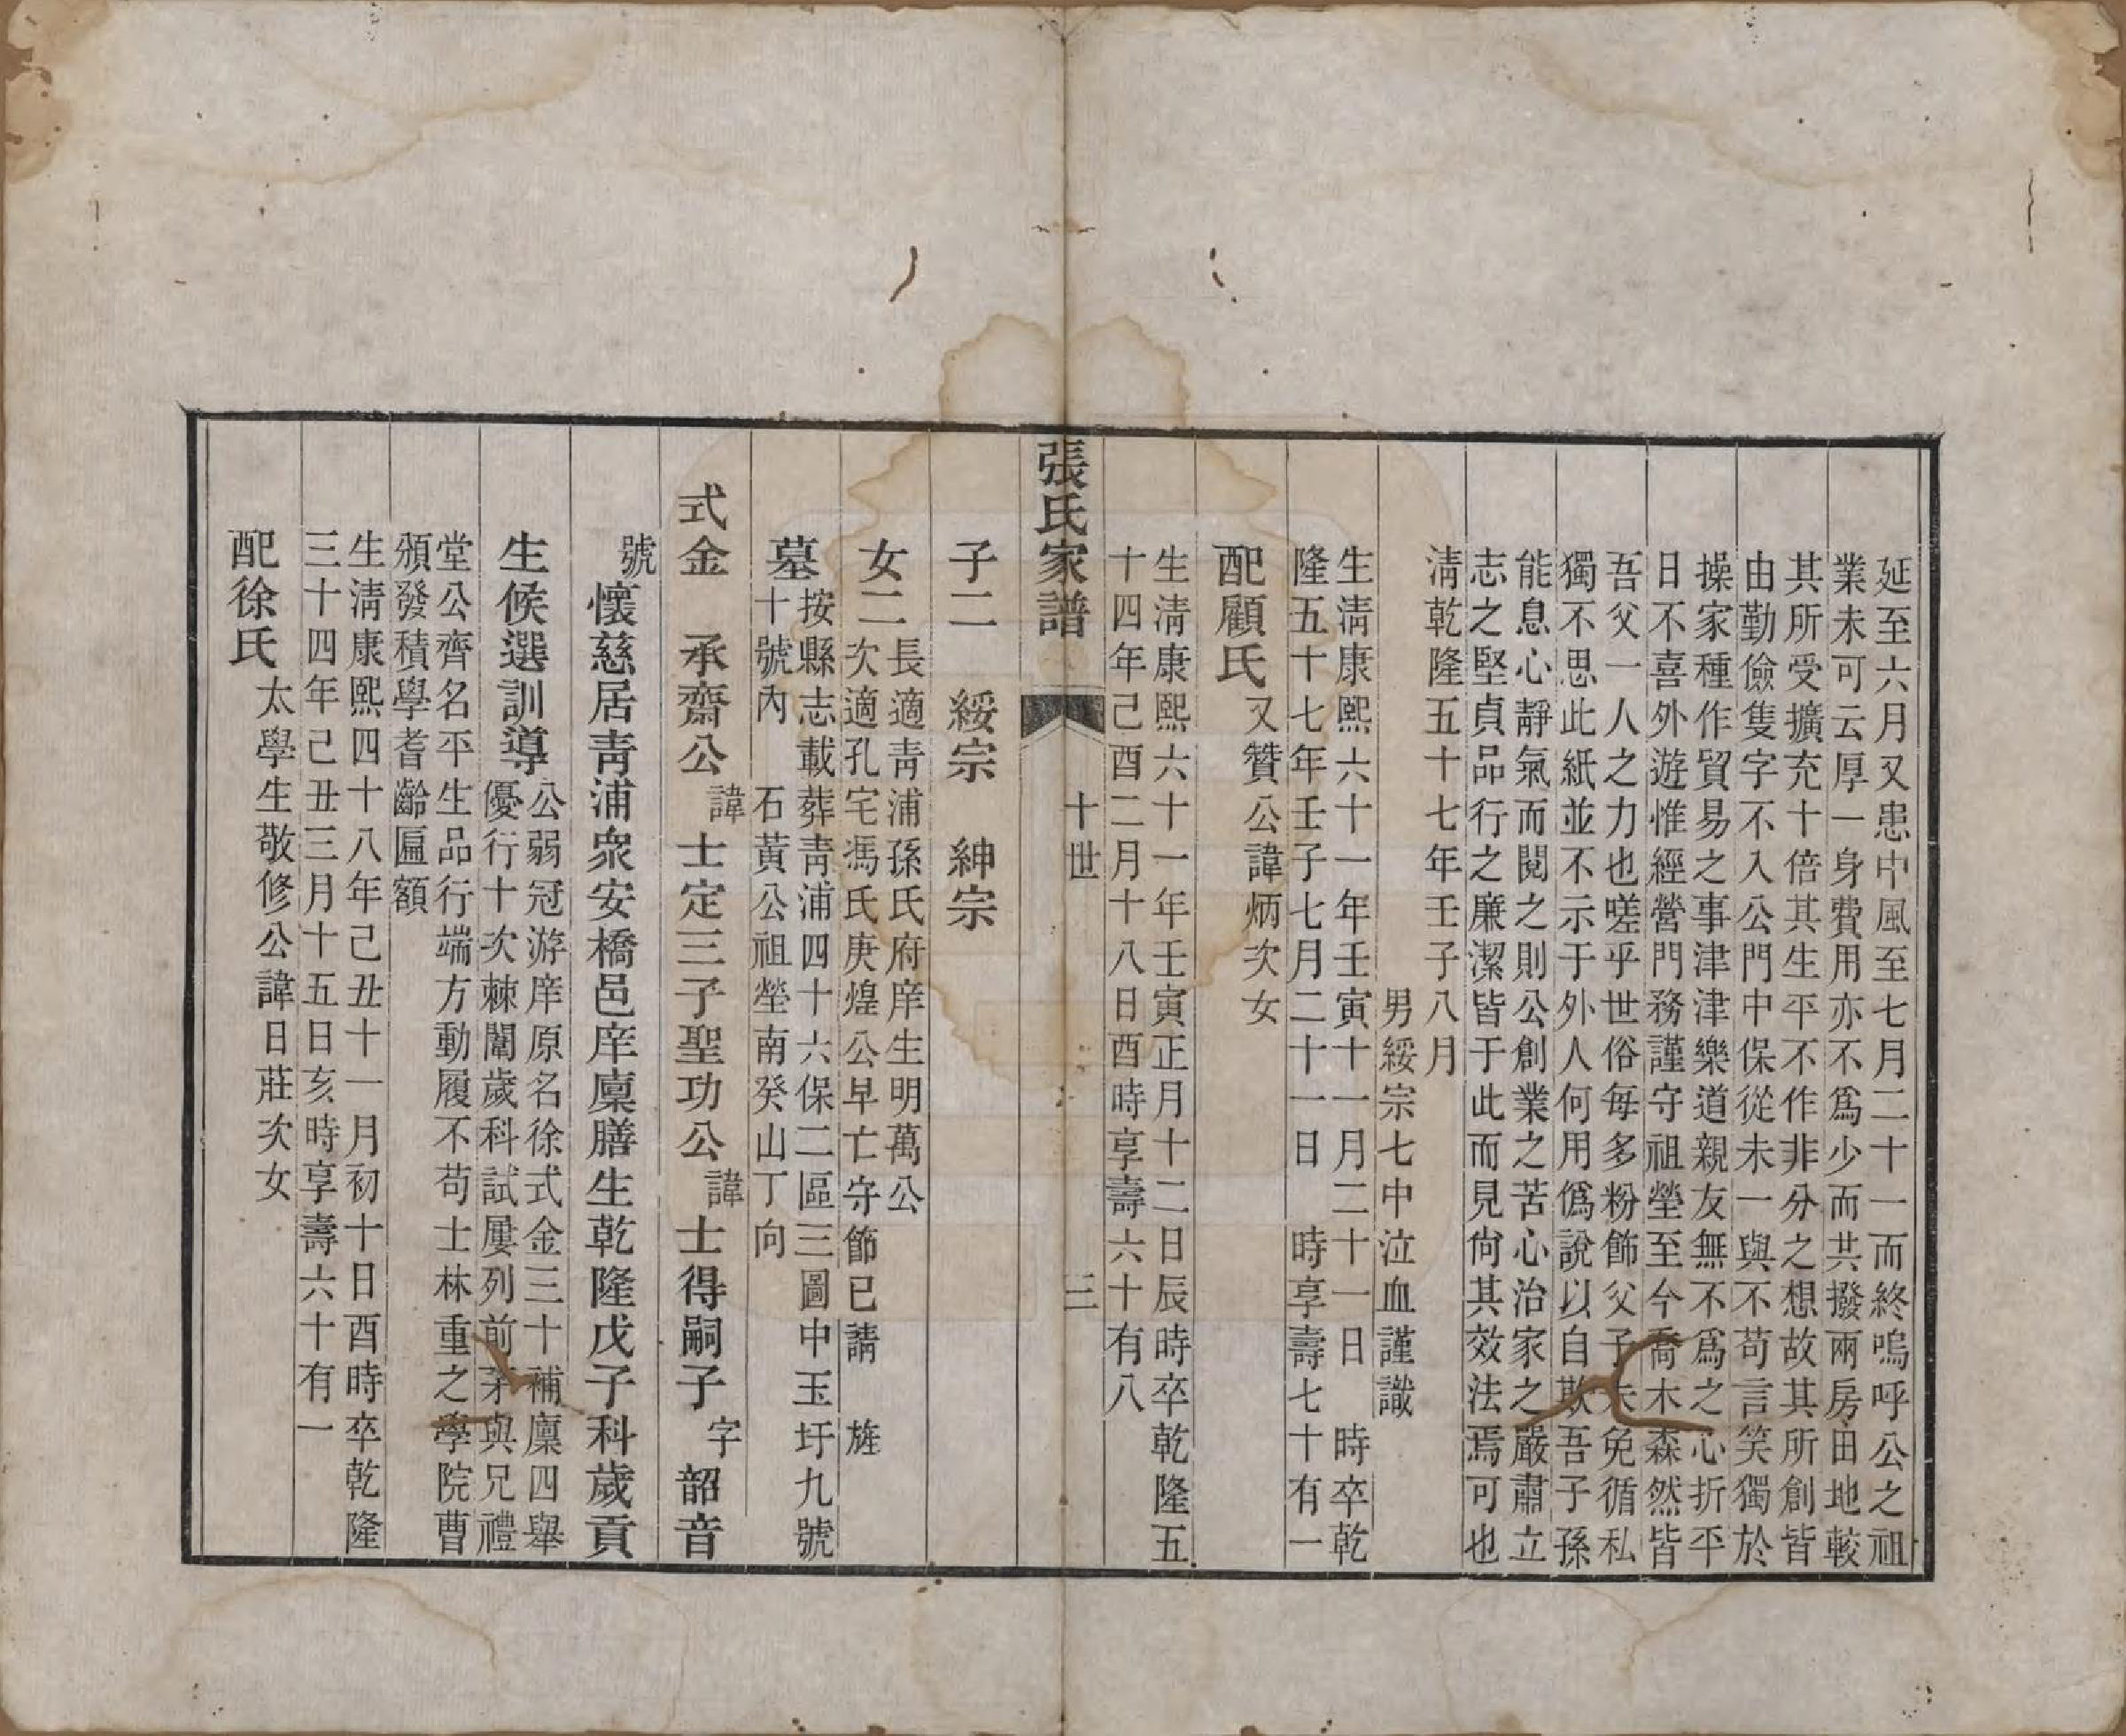 延至六月又患中風至七月二十一而終嗚呼公之祖
業未可云厚一身費用亦不爲少而共撥兩房田地較
其所受擴充十倍其生平不作非分之想故其所創皆
由勤儉隻字不入公門中保從未一與不苟言笑獨於
操家種作貿易之事津津樂道親友無不爲之心折平
日不喜外遊惟經營門務謹守祖塋至今喬木森然皆
吾父一人之力也嗟乎世俗每多粉飾父子未免循私
獨不思此紙並不示于外人何用僞說以自欺吾子孫
能息心靜氣而閱之則公創業之苦心治家之嚴肅立
志之堅貞品行之廉潔皆于此而見尙其效法焉可也
淸乾隆五十七年壬子八月
男綏宗七中泣血謹識
生淸康熙六十一年壬寅十一月二十一日　時卒乾
隆五十七年壬子七月二十一日　時享壽七十有一
配顧氏又贊公諱炳次女
生淸康熙六十一年壬寅正月十二日辰時卒乾隆五
十四年己酉二月十八日酉時享壽六十有八
張氏家譜　十世　三
子二　綏宗　紳宗
女二長適靑浦孫氏府庠生明萬公
次適孔宅馮氏庚煌公早亡守節已請　旌
墓按縣志載葬靑浦四十六保二區三圖中玉圩九號
十號內　石黃公祖塋南癸山丁向
式金　承齋公諱士定三子聖功公諱士得嗣子字韶音
號懷慈居靑浦衆安橋邑庠廩膳生乾隆戊子科歲貢
生候選訓導公弱冠游庠原名徐式金三十補廩四舉
優行十次棘闈歲科試屢列前茅與兄禮
堂公齊名平生品行端方動履不苟士林重之學院曹
頒發積學耆齡匾額
生淸康熙四十八年己丑十一月初十日酉時卒乾隆
三十四年己丑三月十五日亥時享壽六十有一
配徐氏太學生敬修公諱日莊次女